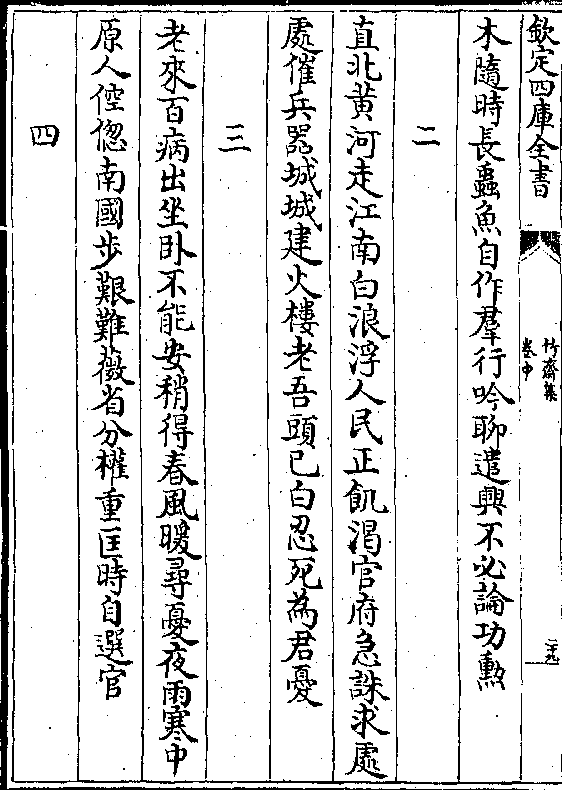 欽定四庫全書
竹齋集
卷中
二十九
木隨時長蟲魚自作羣行吟聊遣興不必論功勲
二
直北黄河走江南白浪浮人民正飢渴官府急誅求處
處催兵器城城建火樓老吾頭已白忍死為君憂
三
老來百病出坐卧不能安稍得春風暖尋憂夜雨寒中
原人倥偬南國步艱難薇省分權重匡時自選官
四